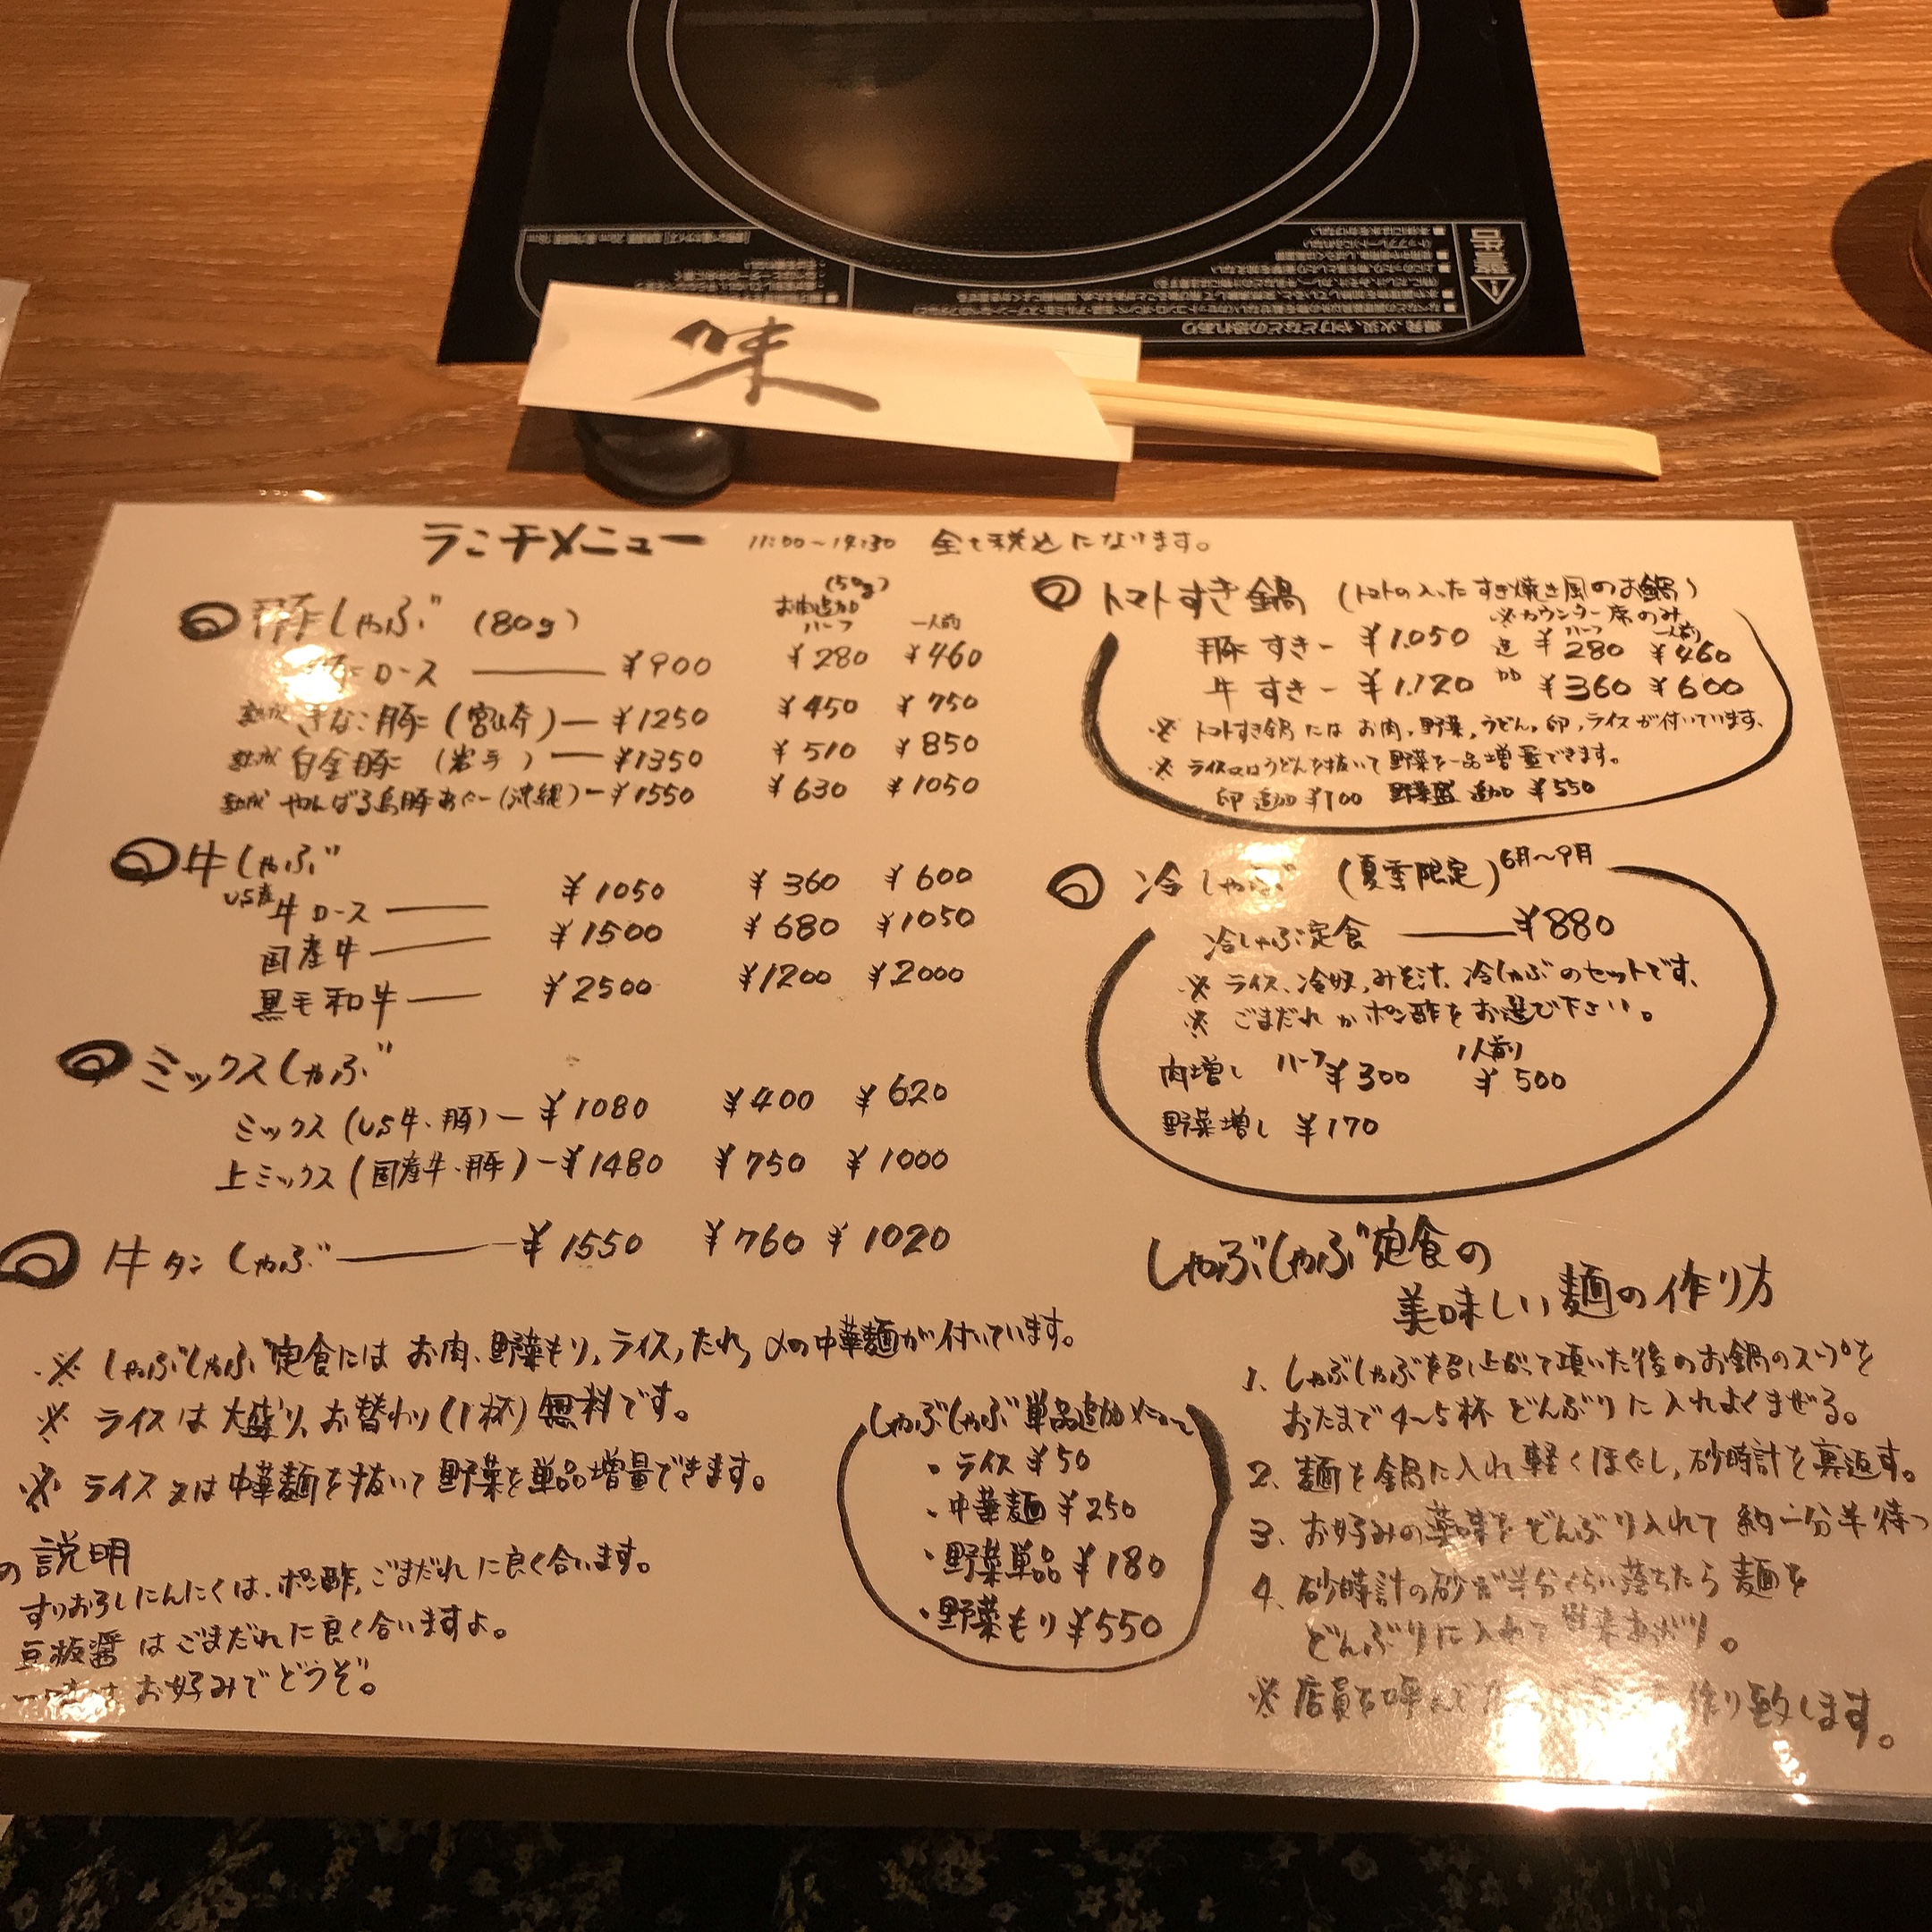 味
ランチメニュー 11:00～14:30 全て税込になります。
豚しゃぶ (80g)
お肉追加 (50g)
ハーフ 一人前
ロース ¥900 ¥280 ¥460
熟成 きなこ豚 (宮崎) ¥1250 ¥450 ¥750
熟成 白金豚 (岩手) ¥1350 ¥510 ¥850
熟成 やんばる島豚あぐー (沖縄) ¥1550 ¥630 ¥1050
牛しゃぶ
US産 牛ロース ¥1050 ¥360 ¥600
国産牛 ¥1500 ¥680 ¥1050
黒毛和牛 ¥2500 ¥1200 ¥2000
ミックスしゃぶ
ミックス (US牛・豚) ¥1080 ¥400 ¥620
上ミックス (国産牛・豚) ¥1480 ¥750 ¥1000
牛タンしゃぶ ¥1550 ¥760 ¥1020
※ しゃぶしゃぶ定食には お肉、野菜もり、ライス、たれ、〆の中華麺が付いています。
※ ライスは大盛り、お替わり(1杯)無料です。
※ ライス又は中華麺を抜いて野菜を単品増量できます。
の説明
すりおろしにんにくは、ポン酢、ごまだれに良く合います。
豆板醤はごまだれに良く合いますよ。
お好みでどうぞ。
しゃぶしゃぶ単品追加メニュー
・ライス ¥50
・中華麺 ¥250
・野菜単品 ¥180
・野菜もり ¥550
トマトすき鍋 (トマトの入ったすき焼き風のお鍋)
※カウンター席のみ
ハーフ 一人前
豚すきー ¥1.050 追 ¥280 ¥460
牛すきー ¥1.120 加 ¥360 ¥600
※ トマトすき鍋には お肉、野菜、うどん、卵、ライスが付いています、
※ ライス又はうどんを抜いて野菜を一品増量できます。
卵追加 ¥100 野菜盛追加 ¥550
冷しゃぶ (夏季限定) 6月～9月
冷しゃぶ定食 ¥880
※ ライス、冷奴、みそ汁、冷しゃぶのセットです、
※ ごまだれかポン酢をお選び下さい。
肉増し ハーフ ¥300 1人前 ¥500
野菜増し ¥170
しゃぶしゃぶ定食の
美味しい麺の作り方
1. しゃぶしゃぶを召し上がって頂いた後のお鍋のスープを
おたまで4～5杯どんぶりに入れよくまぜる。
2. 麺を鍋に入れ軽くほぐし、砂時計を裏返す。
3. お好みの薬味をどんぶり入れて約一分半待つ
4. 砂時計の砂が半分くらい落ちたら麺を
どんぶりに入れて出来あがり。
※ 店員を呼んで 作り致します。